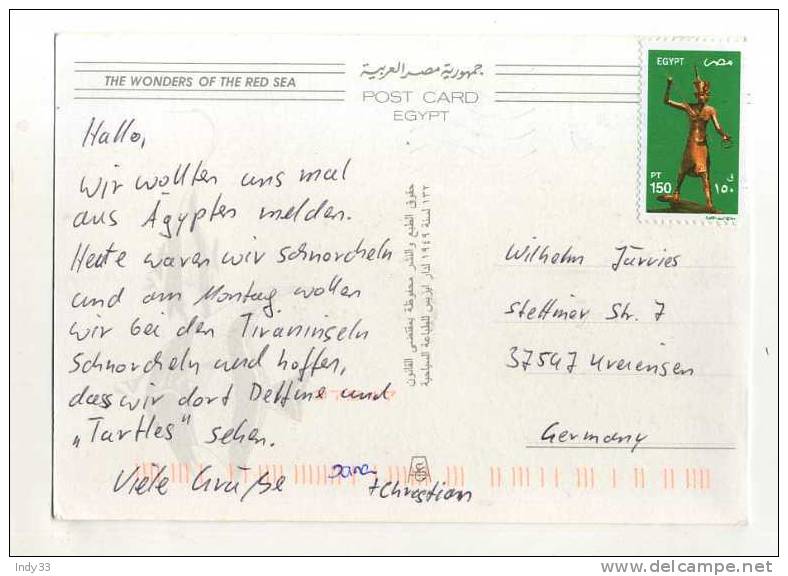 THE WONDERS OF THE RED SEA
جمهورية مصر العربية
POST CARD
EGYPT
EGYPT مصر
PT 150
١٥٠ ق
Hallo,
wir wollten uns mal
aus Ägypten melden.
Heute waren wir schnorcheln
und am Montag wollen
wir bei den Tiraninseln
schnorcheln und hoffen,
dass wir dort Delfine und
„Turtles" sehen.
Viele Grüße
Jana
+ Christian
حقوق الطبع والنشر محفوظة بمقتضى القانون
١٣٢ لسنة ١٩٤٩ لدار ايزيس للطباعة السياحية
Wilhelm
Stettiner Str. 7
37547 Kreiensen
Germany
Indy33